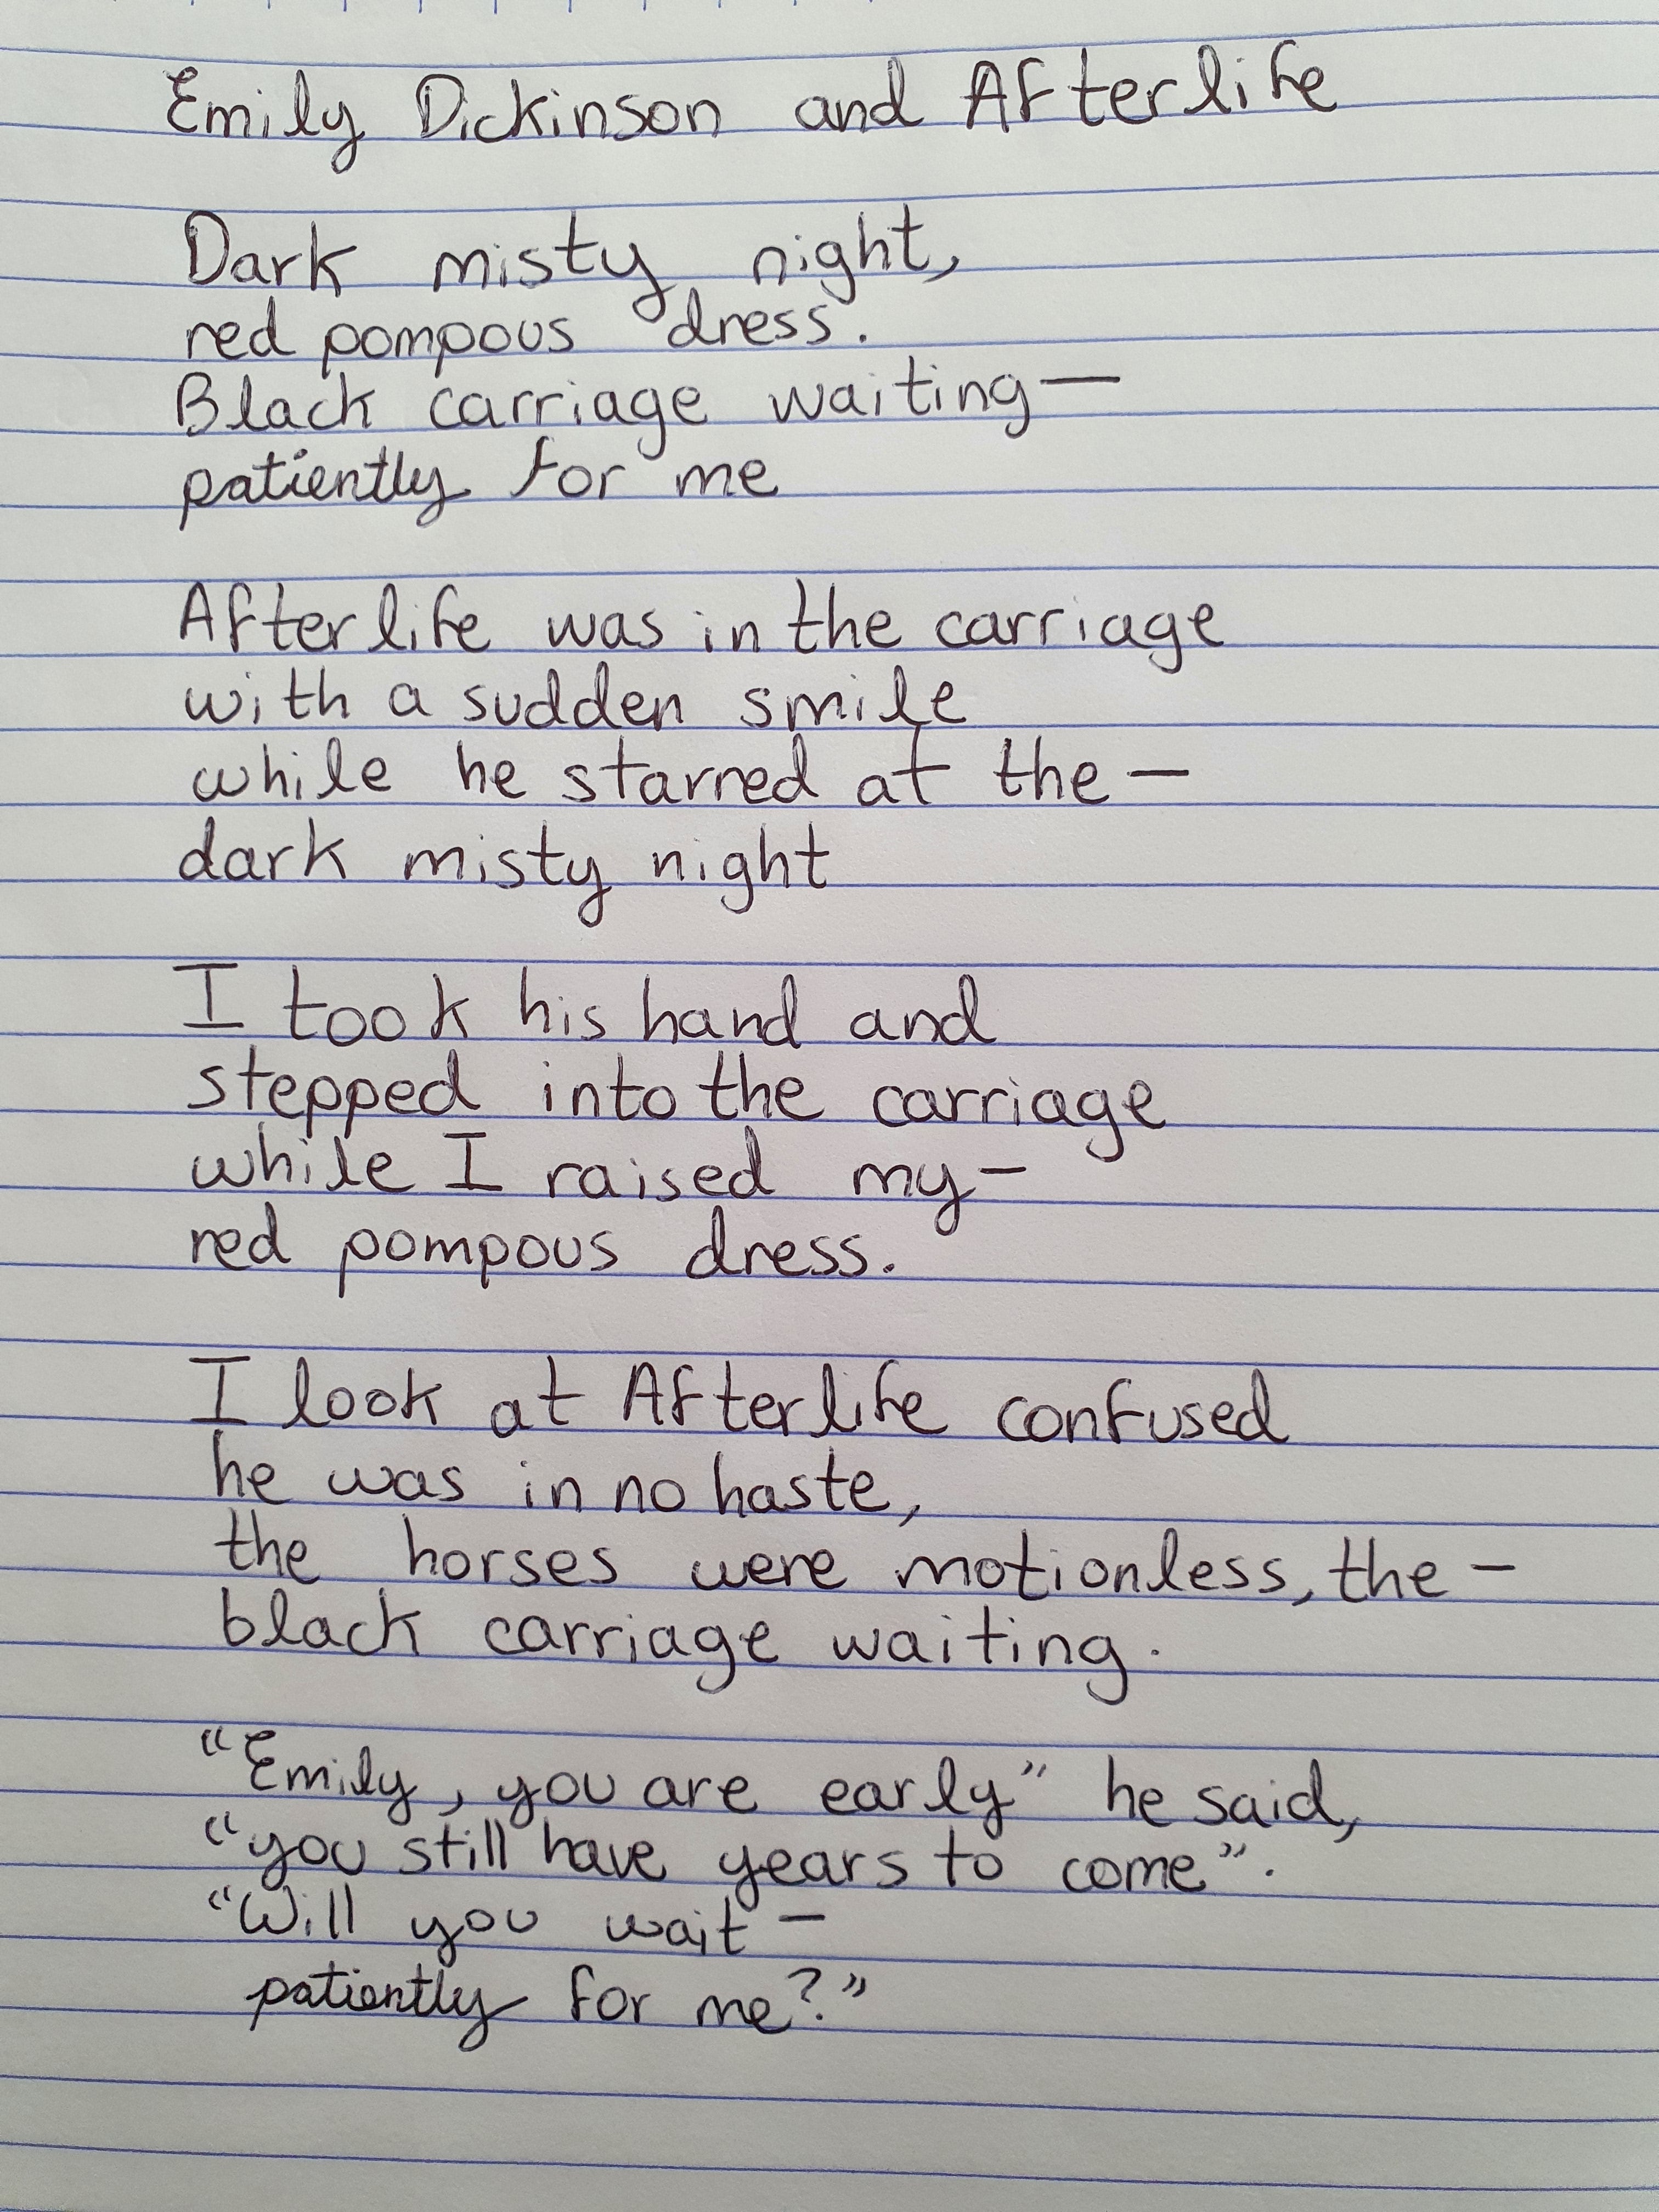 Emily Dickinson and Afterlife
Dark misty night,
red pompous dress.
Black carriage waiting—
patiently for me
Afterlife was in the carriage
with a sudden smile
while he starred at the—
dark misty night
I took his hand and
stepped into the carriage
while I raised my—
red pompous dress.
I look at Afterlife confused
he was in no haste,
the horses were motionless, the—
black carriage waiting.
“Emily, you are early” he said,
“you still have years to come”.
“Will you wait—
patiently for me?”